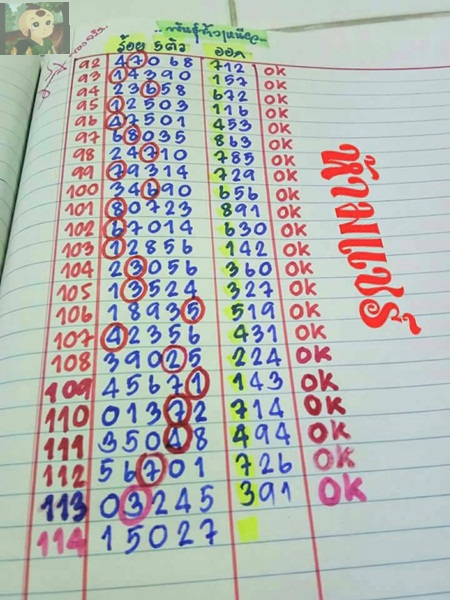 ..พันธุ์ข้าวเหนียว..
ร้อย 5ตัว ออก
92 47068 712 OK
93 14390 157 OK
94 23658 672 OK
95 12503 116 OK
96 47501 453 OK
97 68035 863 OK
98 24710 785 OK
99 79314 729 OK
100 34690 656 OK
101 80723 891 OK
102 67014 630 OK
103 12856 142 OK
104 23056 360 OK
105 13524 327 OK
106 18935 519 OK
107 42356 431 OK
108 39025 224 OK
109 45671 143 OK
110 01372 714 OK
111 35048 494 OK
112 56701 726 OK
113 03245 391 OK
114 15027
ห้ามแชร์